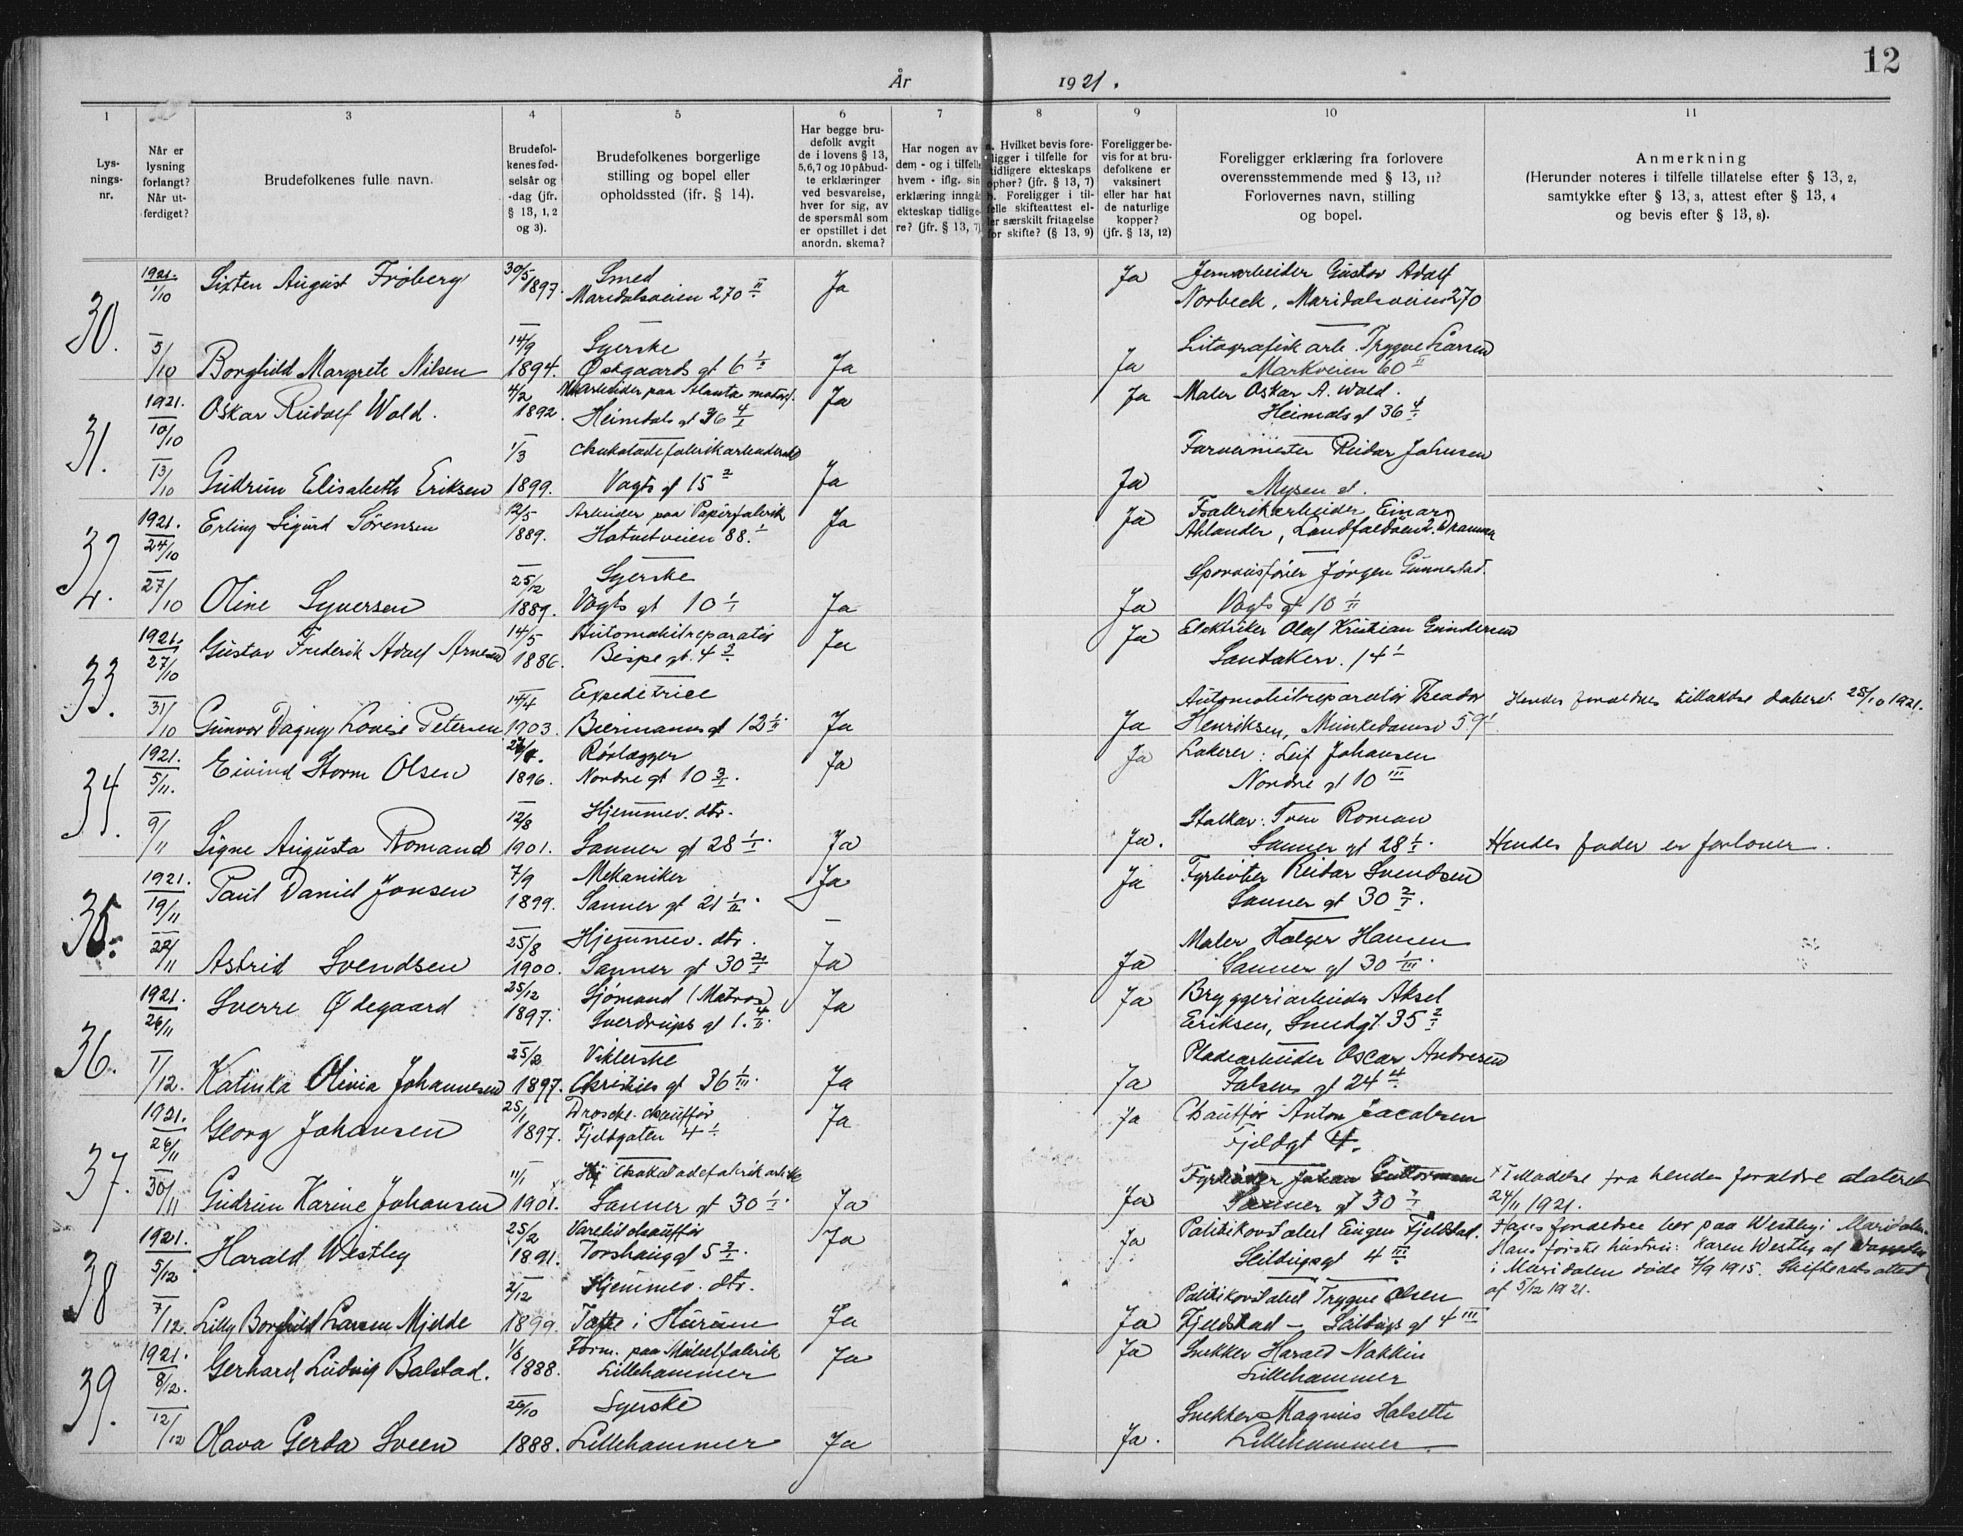 12
År 1921.
1 2 3 4 5 6 7 8 9 10 11
Lys-
nings-
nr.
Når er
lysning
forlangt?
Når ut-
ferdiget?
Brudefolkenes fulle navn.
Brudefol-
kenes fød-
selsår og
-dag (jfr.
§ 13, 1, 2
og 3).
Brudefolkenes borgerlige
stilling og bopel eller
opholdssted (ifr. § 14).
Har begge bru-
defolk avgit
de i lovens § 13,
5,6,7 og 10 påbud-
te erklæringer
ved besvarelse,
hver for sig, av
de spørsmål som
er opstillet i det
anordn. skema?
Har nogen av
dem - og i tilfelle
hvem - iflg. sin
erklæring inngå
ekteskap tidlige-
re? (jfr. § 13, 7)
a. Hvilket bevis fore-
ligger i tilfelle for
tidligere ekteskaps
ophør? (jfr. § 13, 7)
b. Foreligger i til-
felle skifteattest el-
ler særskilt fritagelse
for skifte? (§ 13, 9)
Foreligger be-
vis for at bru-
defolkene er
vaksinert
eller har hat
de naturlige
kopper?
(jfr. § 13, 12)
Foreligger erklæring fra forlovere
overensstemmende med § 13, 11?
Forlovernes navn, stilling
og bopel.
Anmerkning
(Herunder noteres i tilfelle tillatelse efter § 13, 2,
samtykke efter § 13, 3, attest efter § 13, 4
og bevis efter § 13, 8).
30. 1921. 1/10 Sixten August Frøberg 30/5 1897. Smed Ja Ja Jernarbeider Gustav Adolf
Maridalsveien 270 II Norbeck, Maridalsveien 270
5/10 14/9 Syerske Litografisk arb. Trygve Larsen
Borghild Margrete Nilsen 1894. Østgaards gt 6 Ja Ja Markveien 60 II
31. 1921. 10/10 Oskar Rudolf Wold. 4/2 1892. arbeider paa Ja Ja Maler Oskar A. Wold.
Heimdals gt 36 Heimdals gt 36
13/10 1/3 Chokoladefabrikarbeiderske Farvermester Reidar Johnsen
Gudrun Elisabeth Eriksen 1899. Vogts gt 15 Ja Ja Mysen st.
32. 1921. 24/10 Erling Sigurd Sørensen 12/5 1889. Arbeider paa Papirfabrik Ja Ja Fabrikarbeider Einar
88. Ahlander,
27/10 25/12 Syerske Sporveisfører Jørgen Gunnestad.
Oline Syversen 1889. Vogts gt 10 Ja Ja Vogts gt 10
33. 1921. 27/10 Gustav Frederik Adolf Arnesen 14/5 1886. Automobilreparatør Ja Ja Elektriker Olaf Kristian Gundersen
Bispe gt. 4 14
31/10 14/4 Expeditrice Automobilreparatør Theodor Hendes forældres tillatelse dateret 25/10 1921.
Gunvor Dagny Lovise Petersen 1903. Biermanns gt 12 Ja Ja Henriksen, Munkedamsv 59
34. 1921. 5/11. Eivind Storm Olsen 1896. Rørlægger Ja Ja Lakerer: Leif Johansen
Nordre gt 10 Nordre gt 10 III
9/11 12/8 Hjemmev. dtr. Roman
Signe Augusta Romand 1901. Sanner gt 28 Ja Ja. Sanner gt 28 Hendes fader er forlover.
35. 1921. 19/11 Paul Daniel Jonsen 7/9 1899. Mekaniker Ja Ja Fyrbøter Reidar Svendsen
Sanner gt 21 Sanner gt 30
22/11 25/8 Hjemmev. dtr. Maler Holger Hansen
Astrid Svendsen 1900. Sanner gt 30 Ja Ja Sanner gt 30
36. 1921. 26/11 Sverre Ødegaard 25/12 1897. Sjømand (Matros) Ja Ja Bryggeriarbeider Aksel
Sverdrups gt 1. Eriksen, Smedgt 35
1/12. 25/2 Viklerske Pladearbeider Oscar Andresen
Katinka Olivia Johannesen 1897. Christies gt 36 Ja Ja Falsens gt 24
37. 1921. 26/11 Georg Johansen 25/1 1897. Drosche-chauffør Ja Ja Chauffør Anton Jacobsen
Fjeldgaten 4 Fjeldgt 4.
30/11 11/1 Chokoladefabrikarb Fyrbøter Johan Guttormsen x Tilladelse fra hendes forældre dateret
Gudrun Karine Johansen 1901. Sanner gt 30 Ja Ja Sanner gt 30 24/11 1921.
38. 1921. 5/12 Harald Westby 25/2 1891. Varebilchauffør Ja Ja Politikonstabel Eugen Fjeldstad. Hans forældre bor paa Westby i Maridalen.
Torshauggt 5 Seilduksgt 4 III Hans første hustru: Karen Westby af
i Maridalen døde 7/9 1915. Skifteretsattest
7/12. 2/12 Hjemmev. dtr. Politikonstabel Trygve Olsen af 5/12 1921.
Lilly Borghild Larsen Mjelde 1899. Tofte i Hurum Ja Ja Fjeldstad - Seilduks gt 4 III
39. 1921. 8/12. Gerhard Ludvig Balstad. 1/8 1888. Form. paa Møbelfabrik Ja Ja Snekker Harald Nakkin
Lillehammer Lillehammer
12/12 26/10 Syerske Snekker Magnus Halseth
Olava Gerda Sveen 1888. Lillehammer Ja Ja. Lillehammer